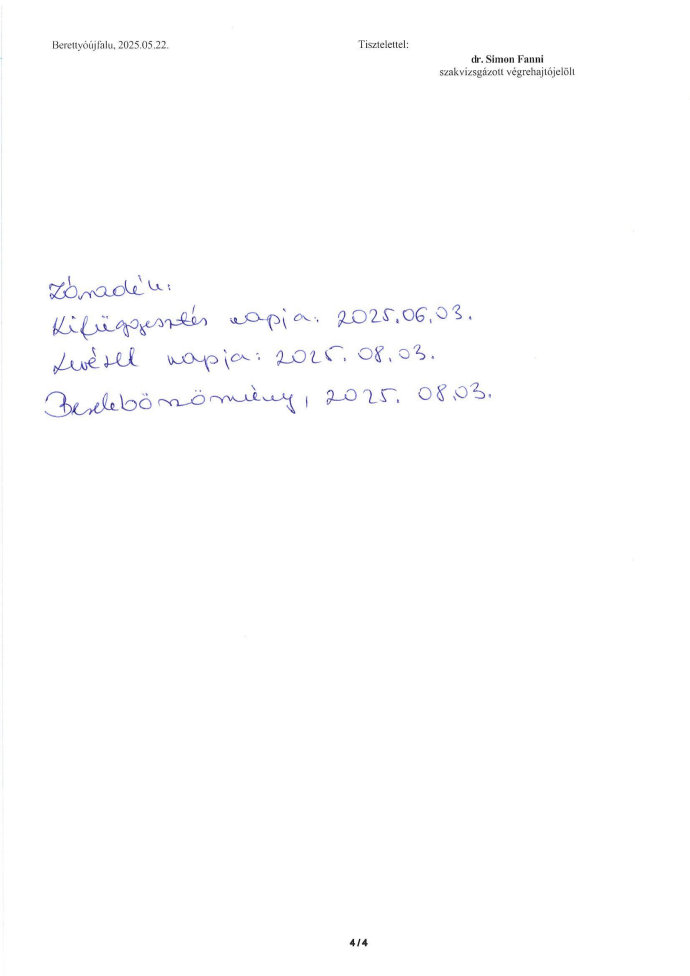 Berettyóújfalu, 2025.05.22.
Tisztelettel:
dr. Simon Fanni
szakvizsgázott végrehajtójelölt
Záradék:
Kifüggesztés napja: 2025.06.03.
Levétel napja: 2025. 08.03.
Berekböszörmény, 2025. 08.03.
4/4